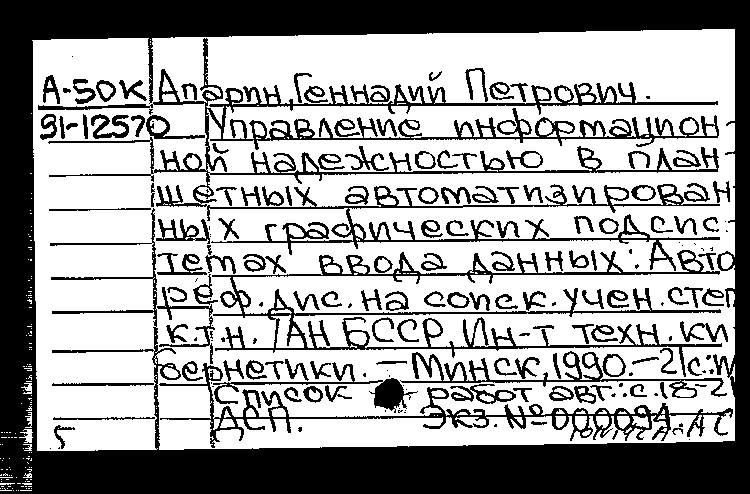 А-50К Апарин, Геннадий Петрович.
91-12570 Управление информацион-
ной надежностью в план-
шетных автоматизирован
ных графических подсис-
темах ввода данных: Авто
реф. дис. на соиск. учен. степ
к.т.н. /АН БССР, Ин-т техн. ки
бернетики. – Минск, 1990. – 21с.:и
Список работ авт.: с.18-2
ДСП. Экз. № 000094
5